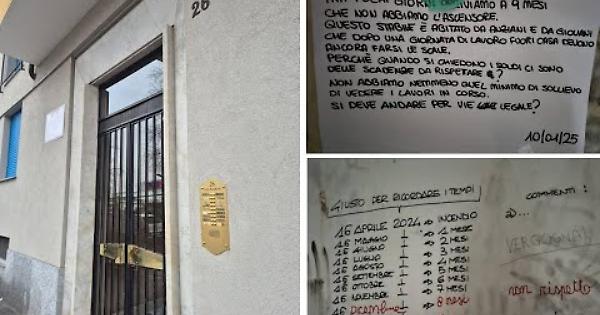 26
TRA POCHI GIORNI ARRIVIAMO A 9 MESI
CHE NON ABBIAMO L'ASCENSORE.
QUESTO STABILE È ABITATO DA ANZIANI E DA GIOVANI
CHE DOPO UNA GIORNATA DI LAVORO FUORI CASA DEVONO
ANCORA FARSI LE SCALE.
PERCHÈ QUANDO SI CHIEDONO I SOLDI CI SONO
DELLE SCADENZE DA RISPETTARE E?
NON ABBIAMO NEMMENO QUEL MINIMO DI SOLLIEVO
DI VEDERE I LAVORI IN CORSO.
SI DEVE ANDARE PER VIE LEGALE?
10/01/25
GIUSTO PER RICORDARE I TEMPI
COMMENTI:
16 APRILE 2024 => INCENDIO
16 MAGGIO => 1 MESE
16 GIUGNO => 2 MESI
16 LUGLIO => 3 MESI
16 AGOSTO => 4 MESI
16 SETTEMBRE => 5 MESI
16 OTTOBRE => 6 MESI
16 NOVEMBRE => 7 MESI
16 DICEMBRE => 8 MESI
VERGOGNA!!
non rispetto